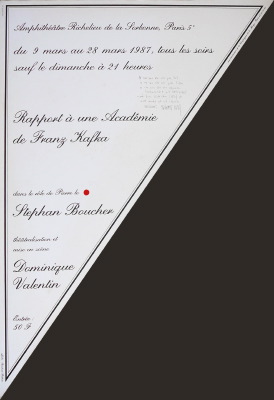 Amphithéâtre Richelieu de la Sorbonne, Paris 5e
du 9 mars au 28 mars 1987, tous les soirs
sauf le dimanche à 21 heures
Rapport à une Académie
de Franz Kafka
dans le rôle de Pierre le
Stephan Boucher
théâtralisation et
mise en scène
Dominique
Valentin
Entrée :
50 F